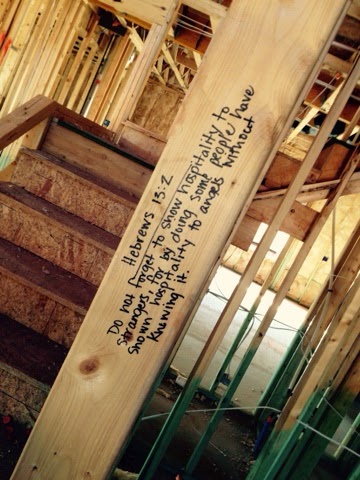 Hebrews 13:2
Do not forget to show hospitality to
strangers, for by doing some people have
shown hospitality to angels without
knowing it.